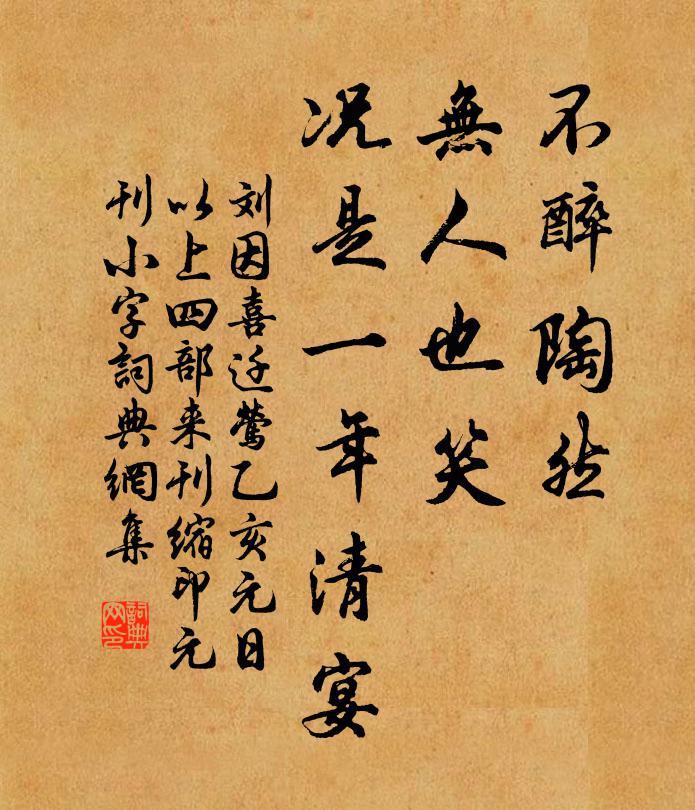 不醉陶然
無人也笑
况是一年清宴
刘因喜迁莺乙亥元日
以上四部来刊缩印元
刊小字詞典網集
詞典网印